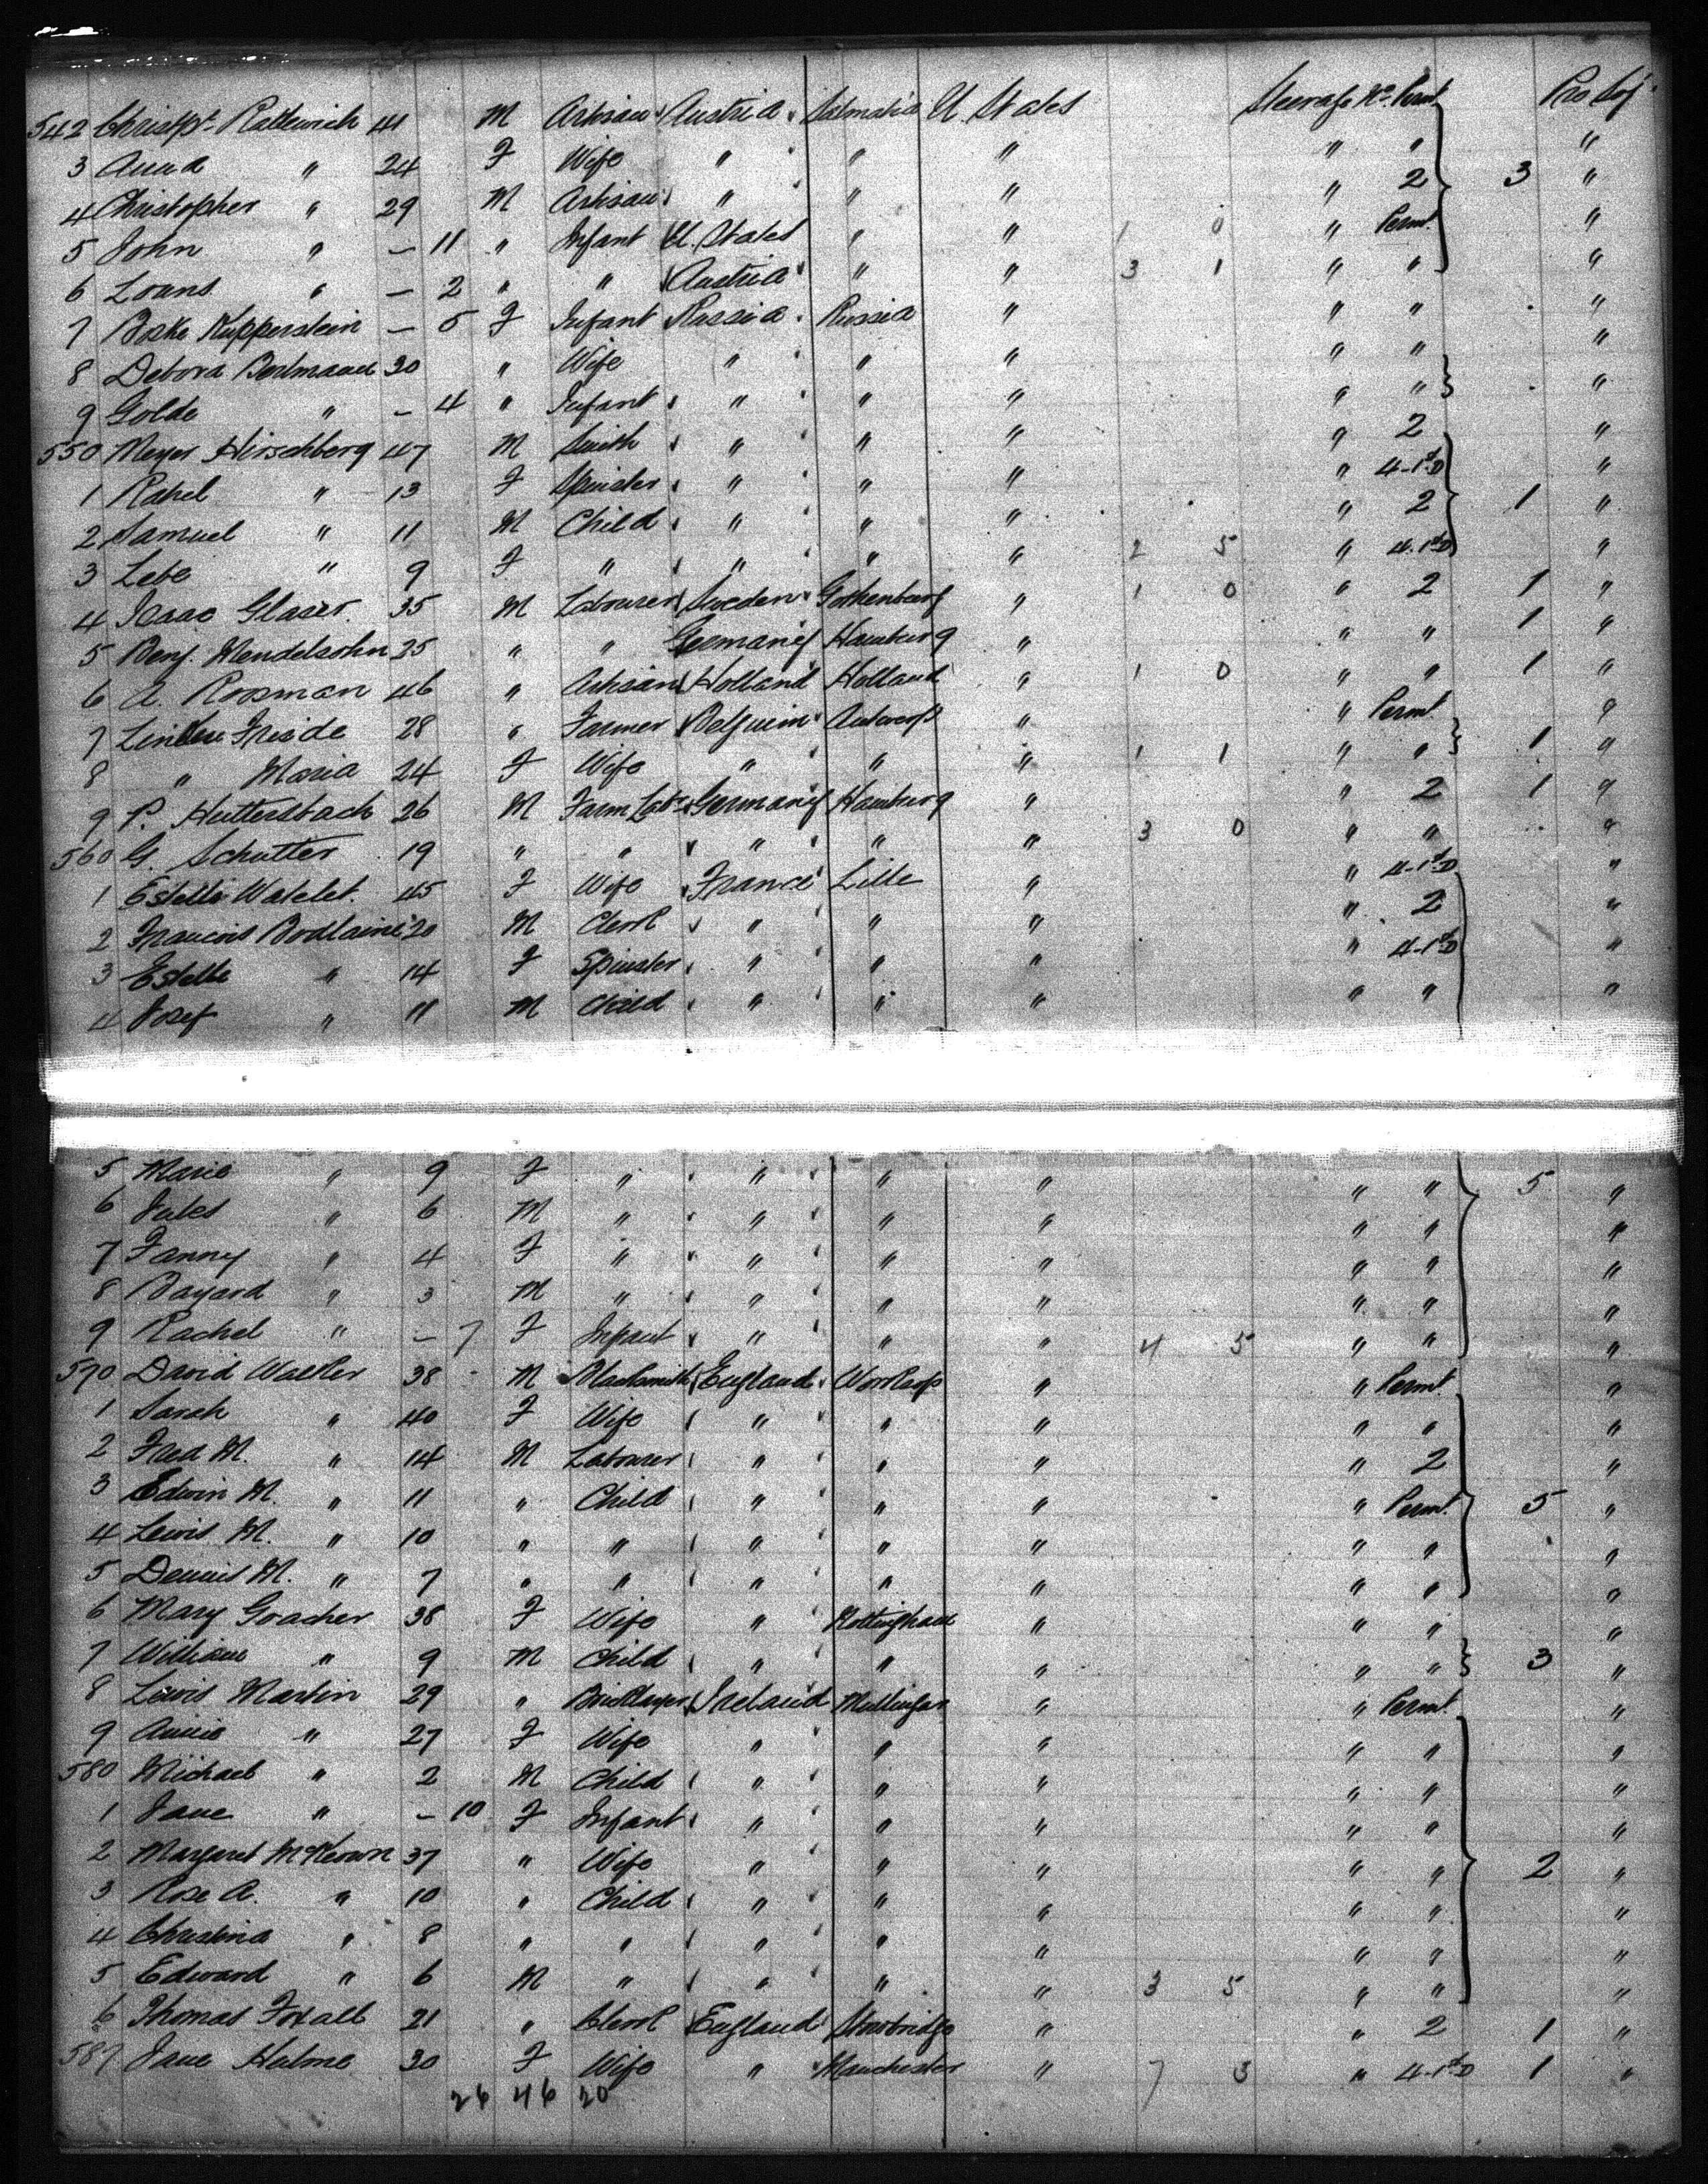 542 Christpr. Ratkevich 41 M Artisan Austria Dalmatia U States Steerage No. Permt Pro Soj
3 Anna " 24 F Wife " " " " " "
4 Christopher " 29 M Artisan " " " " 2 3 "
5 John " — 11 " Infant U. States " " 1 0 " Permt. "
6 Loans " — 2 " " Austria " " 3 1 " " "
7 Kupperstein — 5 F Infant Russia Russia " " " "
8 Debora 30 " Wife " " " " " "
9 Golde " — 4 " Infant " " " " " "
550 Meyer Hirschberg 47 M Smith " " " " 2 "
1 Rahel " 13 F Spinster " " " " 4-1st D "
2 Samuel " 11 M Child " " " " 2 1 "
3 Lebe " 9 F " " " " 2 5 " 4-1st D "
4 Isaac Glaser. 35 M Labourer Sweden Gothenburg " 1 0 " 2 1 "
5 Benj. Mendelsohn 35 " " Germany Hamburg " " " 1 "
6 A. Rossman 46 " Artisan Holland Holland " 1 0 " " 1 "
7 Friede 28 " Farmer Belguim Antwerp " " Permt. "
8 " Maria 24 F Wife " " " 1 1 " " 1 "
9 P. Huttersbach 26 M Farm Labr Germany Hamburg " " 2 1 "
560 G. Schutter 19 " " " " " 3 0 " " "
1 Estelle Watelet. 45 F Wife France Lille " " 4-1st D "
2 Francois Bodlaine 20 M Clerk " " " " 2 "
3 Estelle " 14 F Spinster " " " " 4-1st D "
4 Josef " 11 M Child " " " " " "
5 Marie " 9 F " " " " " " 5 "
6 Jules " 6 M " " " " " " "
7 Fanny " 4 F " " " " " " "
8 Bayard " 3 M " " " " " " "
9 Rachel " — 7 F Infant " " " 4 5 " " "
570 David Walker 38 M Blacksmith England Worksop " " Permt. "
1 Sarah " 40 F Wife " " " " " "
2 Fred M. " 14 M Labourer " " " " 2 "
3 Edwin M. " 11 " Child " " " " Permt. 5 "
4 Lewis M. " 10 " " " " " " " "
5 Dennis M. " 7 " " " " " " " "
6 Mary Goacher 38 F Wife " Nottingham " " " "
7 William " 9 M Child " " " " " 3 "
8 Lewis Martin 29 " Bricklayer Ireland Mullingar " " Permt. "
9 Annie " 27 F Wife " " " " " "
580 Michael " 2 M Child " " " " " "
1 Jane " — 10 F Infant " " " " " "
2 Margaret McKeown 37 " Wife " " " " " 2 "
3 Rose A. " 10 " Child " " " " " "
4 Christina " 8 " " " " " " " "
5 Edward " 6 M " " " " 3 5 " " "
6 Thomas Foxall 21 " Clerk England Stourbridge " " 2 1 "
587 Jane Halme 30 F Wife " Manchester " 7 3 " 4-1st D 1 "
26 46 20